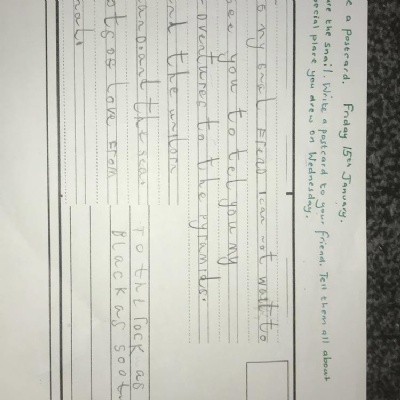 a postcard. Friday 15th January.
the snail. Write a postcard to your friend. Tell them all about
place you drew on Wednesday.
my snal frend I can not wait to
see you to tel you my
to the pyramids.
the
the sea.
of love from
To the rock as
Black as soot